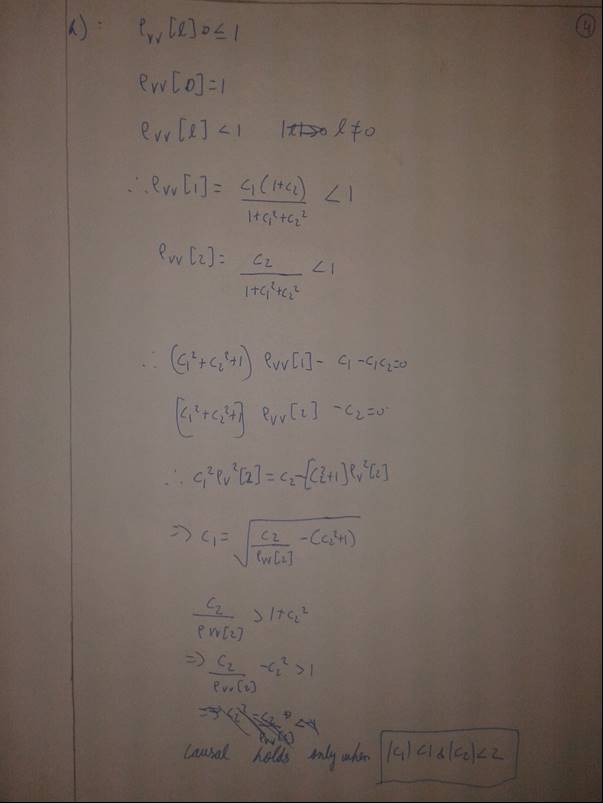 h): ρvv[l] ≤ 1
4
ρvv[0]=1
ρvv[l] <1 l≠0
∴ρvv[1] = c1(1+c2)/(1+c1²+c2²) <1
ρvv[2] = c2/(1+c1²+c2²) <1
∴ (c1²+c2²+1) ρvv[1] - c1 - c1c2=0
[c1²+c2²+1] ρvv[2] - c2=0
∴ c1²ρv²[2] = c2-[c2²+1]ρv²[2]
=> c1 = √(c2/ρvv[2] -(c2²+1))
c2/ρvv[2] > 1+c2²
=> c2/ρvv[2] -c2² > 1
causal holds only when |c1|<1 & |c2|<2